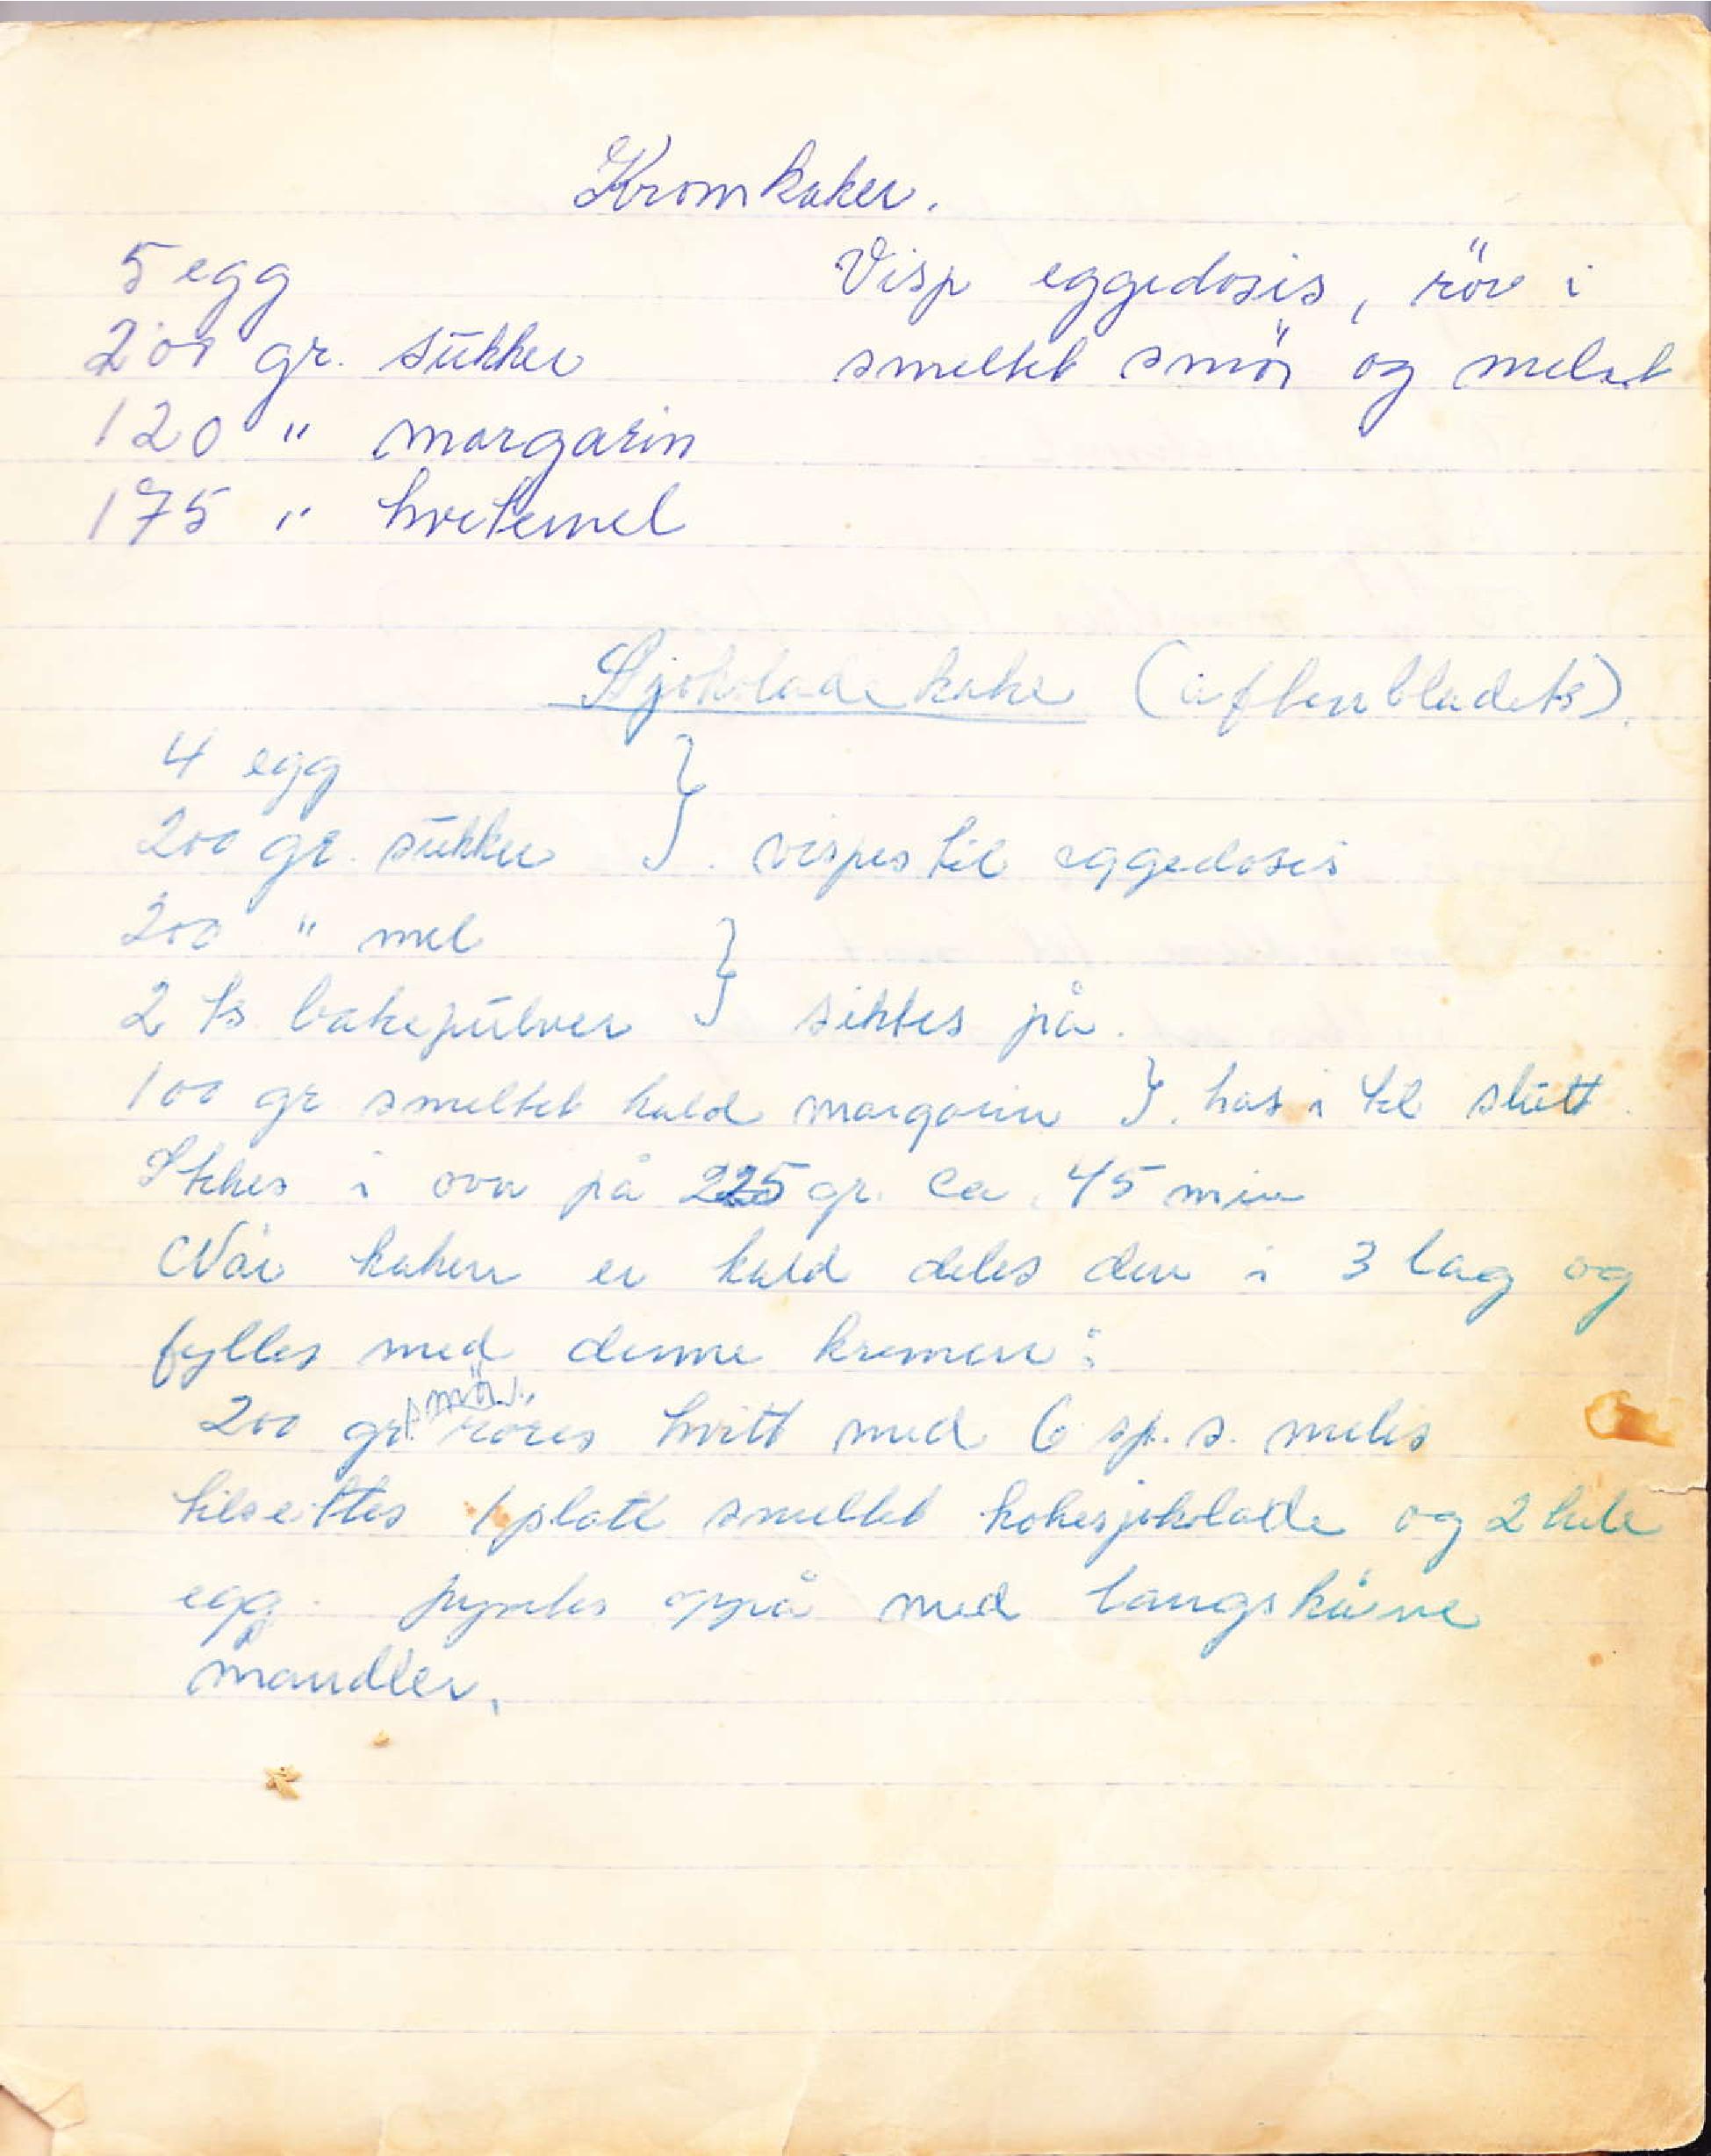 Kromkaker.
5 egg
200 gr. sukker
120 " margarin
175 " hvetemel
Visp eggedosis, rör i
smeltet smör og melet
Sjokolade kake (aftenbladets).
4 egg
200 gr. sukker } . vispes til eggedosis
200 " mel
2 ts bakepulver } siktes på.
100 gr smeltet kald margarin } . has i til slutt.
Stekes i ovn på 225 gr. ca. 45 min
Når kaken er kald deles den i 3 lag og
fylles med denne kremen:
200 gr. smör röres hvitt med 6 sp. s. melis
tilsettes 1 plate smeltet kokesjokolade og 2 hele
egg. pyntes oppå med langskårne
mandler.